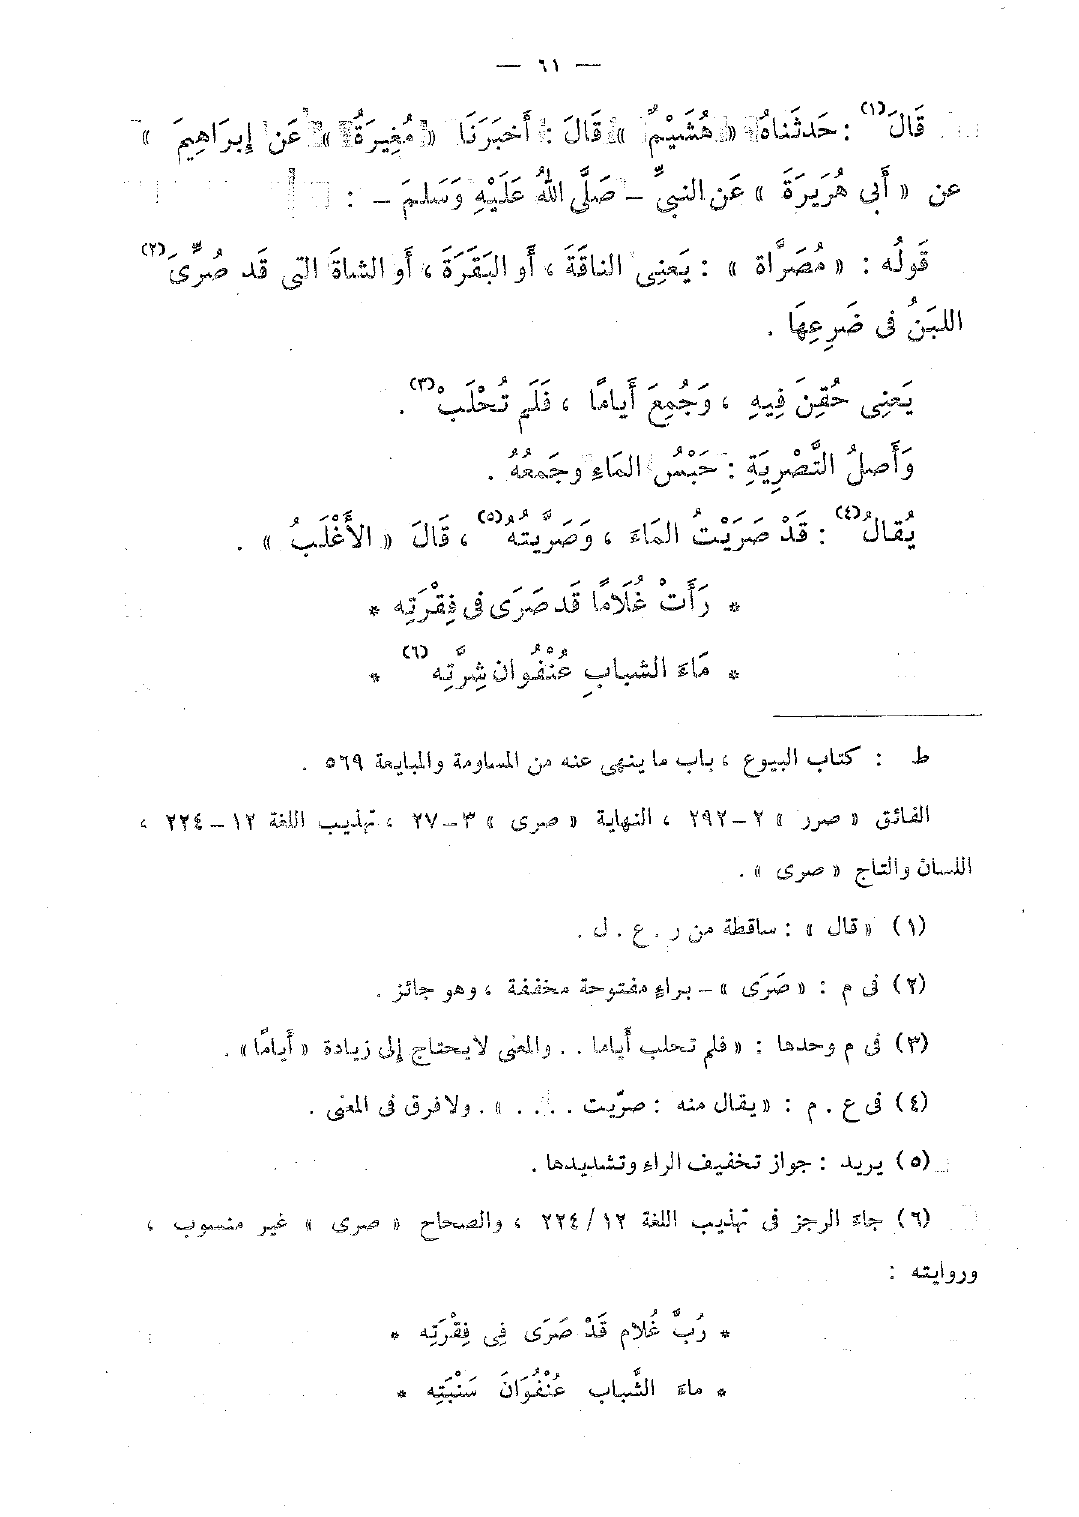 — ٦١ —
قَالَ(١) : حَدثَناهُ « هُشَيْمٌ » قَالَ : أَخبَرَنَا « مُغِيرَةُ » عَن إِبرَاهِيمَ »
عن « أَبى هُرَيرَةَ » عَن النبىِّ – صَلَّى اللهُ عَلَيْهِ وَسَلمَ – :
قَولُه : « مُصَرَّاة » : يَعنِى الناقَةَ ، أَو البَقَرَةَ ، أَو الشاةَ التى قَد صُرِّىَ(٢)
اللبَنُ فى ضَرعِهَا .
يَعنِى حُقِنَ فِيهِ ، وَجُمِعَ أَيامًا ، فَلَم تُحْلَبْ(٣) .
وَأَصلُ التَّصْرِيَةِ : حَبْسُ المَاءِ وجَمعُهُ .
يُقالُ(٤) : قَدْ صَرَيْتُ المَاءَ ، وَصَرَّيتُهُ(٥) ، قَالَ « الأَغْلَبُ » .
* رَأَتْ غُلَامًا قَد صَرَى فى فِقْرَتِه *
* مَاءَ الشبابِ عُنْفُوان شِرَّتِه (٦) *
ط : كتاب البيوع ، باب ما ينهى عنه من المساومة والمبايعة ٥٦٩ .
الفائق « صرر » ٢–٢٩٢ ، النهاية « صرى » ٣–٢٧ ، تهذيب اللغة ١٢–٢٢٤ ،
اللسان والتاج « صرى » .
(١) « قال » : ساقطة من ر . ع . ل .
(٢) فى م : « صَرَى » – براءٍ مفتوحة مخففة ، وهو جائز .
(٣) فى م وحدها : « فلم تحلب أياما . . والمعنى لايحتاج إلى زيادة « أَيامًا » .
(٤) فى ع . م : « يقال منه : صرّيت . . . . » . ولا فرق فى المعنى .
(٥) يريد : جواز تخفيف الراء وتشديدها .
(٦) جاء الرجز فى تهذيب اللغة ١٢/٢٢٤ ، والصحاح « صرى » غير منسوب ،
وروايته :
* رُبَّ غُلام قَدْ صَرَى فِى فِقْرَتِه *
* ماءَ الشَّباب عُنْفُوَانَ سَنْبَتِه *